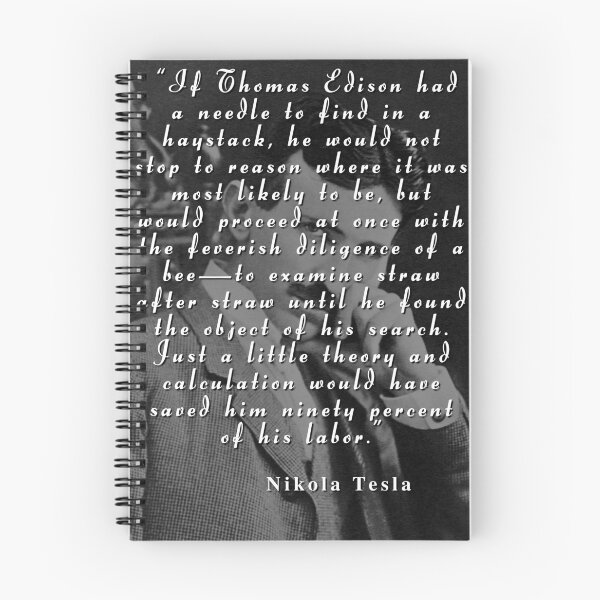 “If Thomas Edison had
a needle to find in a
haystack, he would not
stop to reason where it was
most likely to be, but
would proceed at once with
the feverish diligence of a
bee—to examine straw
after straw until he found
the object of his search.
Just a little theory and
calculation would have
saved him ninety percent
of his labor.”
Nikola Tesla